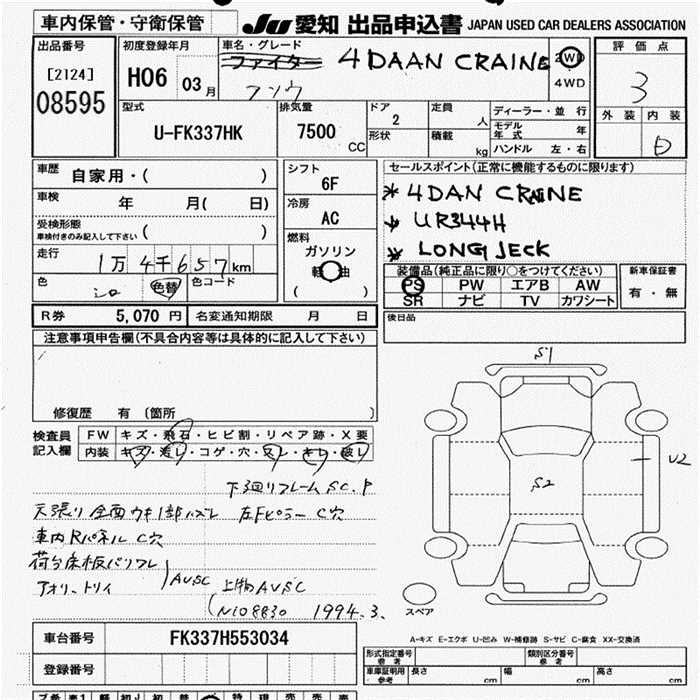 車内保管・守衛保管
JU 愛知 出品申込書 JAPAN USED CAR DEALERS ASSOCIATION
出品番号
[2124]
08595
初度登録年月
H06 03月
車名・グレード
ファイター 4 DAAN CRAINE
フソウ
2WD
4WD
評価点
3
外装 内装
D
型式
U-FK337HK
排気量
7500 CC
ドア
2
形状
定員
人
積載
kg
ディーラー・並行
モデル年式 年
ハンドル 左・右
車歴 自家用・( )
車検 年 月( 日)
受検形態
車検付きのみ記入して下さい ( )
走行 1万4千657km
色 シロ 色替 色コード
シフト
6F
冷房
AC
燃料
ガソリン
軽油
( )
セールスポイント(正常に機能するものに限ります)
* 4 DAN CRAINE
* UR344H
* LONG JECK
装備品(純正品に限り○をつけてください)
PS PW エアB AW
SR ナビ TV カワシート
新車保証書
有・無
R券 5,070 円 名変通知期限 月 日
後日品
注意事項申告欄(不具合内容等は具体的に記入して下さい)
修復歴 有 〔箇所 〕
検査員
記入欄
FW キズ・飛石・ヒビ割・リペア跡・X要
内装 キズ・汚レ・コゲ・穴・スレ・キレ・破レ
下廻リフレーム SC.P
天張り 全面ウキ1部ハズレ 左Fピラー C穴
車内Rパネル C穴
荷台床板バリフレ
アオリ・トリイ AVSC 上物AVSC
(N108830 1994.3.
S1
S2
U2
スペア
A-キズ E-エクボ U-凹み W-補修跡 S-サビ C-腐食 XX-交換済
車台番号 FK337H553034
登録番号
形式指定番号
参考
類別区分番号
参考
車庫証明用
参考
長さ cm 幅 cm 高さ cm